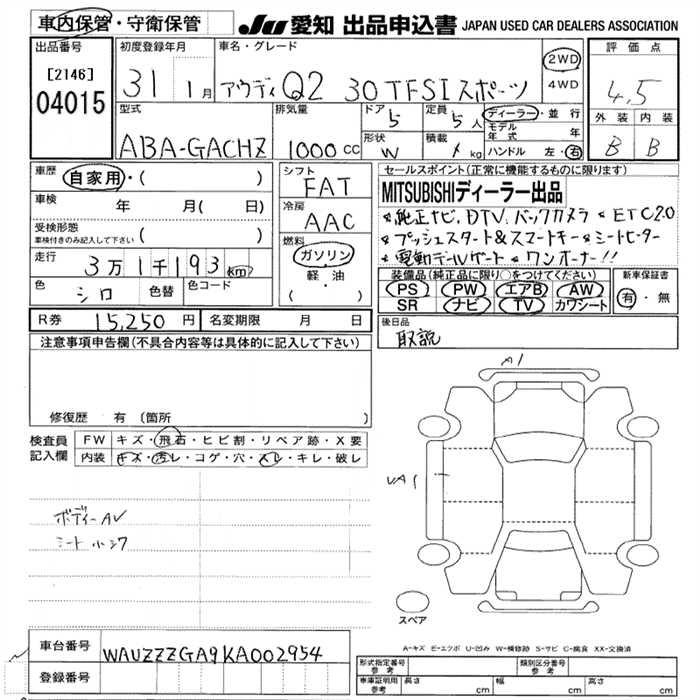 車内保管・守衛保管
JU 愛知 出品申込書 JAPAN USED CAR DEALERS ASSOCIATION
出品番号 初度登録年月 車名・グレード 評価点
[2146]
04015
31 1月 アウディ Q2 30TFSIスポーツ 2WD 4WD 4,5
型式 排気量 ドア 定員 ディーラー・並行 外装 内装
ABA-GACHZ 1000cc 5 5人 モデル年式 年 B B
形状 積載 ハンドル 左・右
W kg
車歴 自家用・( ) シフト FAT
車検 年 月( 日) 冷房 AAC
受検形態 ( )
車検付きのみ記入して下さい
燃料 ガソリン 軽・油 ( )
走行 3万1千193km
色 シロ 色替 色コード
R券 15,250円 名変期限 月 日
セールスポイント(正常に機能するものに限ります)
MITSUBISHIディーラー出品
*純正ナビ.DTV.バックカメラ *ETC2.0
*プッシュスタート&スマートキー *シートヒーター
*電動テールゲート *ワンオーナー!!
装備品(純正品に限り○をつけてください) 新車保証書
PS PW エアB AW 有・無
SR ナビ TV カワシート
後日品
取説
注意事項申告欄(不具合内容等は具体的に記入して下さい)
修復歴 有 (箇所 )
検査員記入欄 FW キズ・飛石・ヒビ割・リペア跡・X要
内装 キズ・汚レ・コゲ・穴・スレ・キレ・破レ
ボディーAV
シート小シワ
A1
UA1
スペア
A-キズ E-エクボ U-凹み W-補修跡 S-サビ C-腐食 XX-交換済
車台番号 WAUZZZGA9KA002954
登録番号
形式指定番号 参考 類別区分番号 参考
車庫証明用 参考 長さ cm 幅 cm 高さ cm